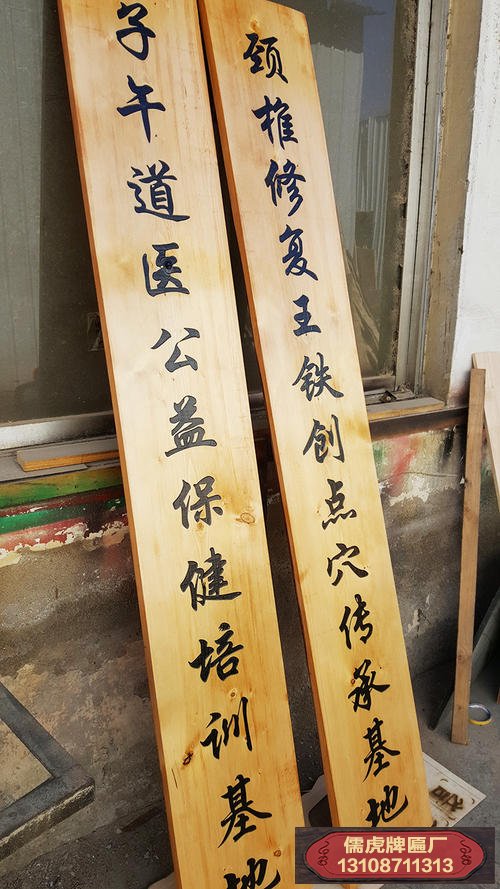 子午道医公益保健培训基地
颈椎修复王铁创点穴传承基地
儒虎牌匾厂
13108711313